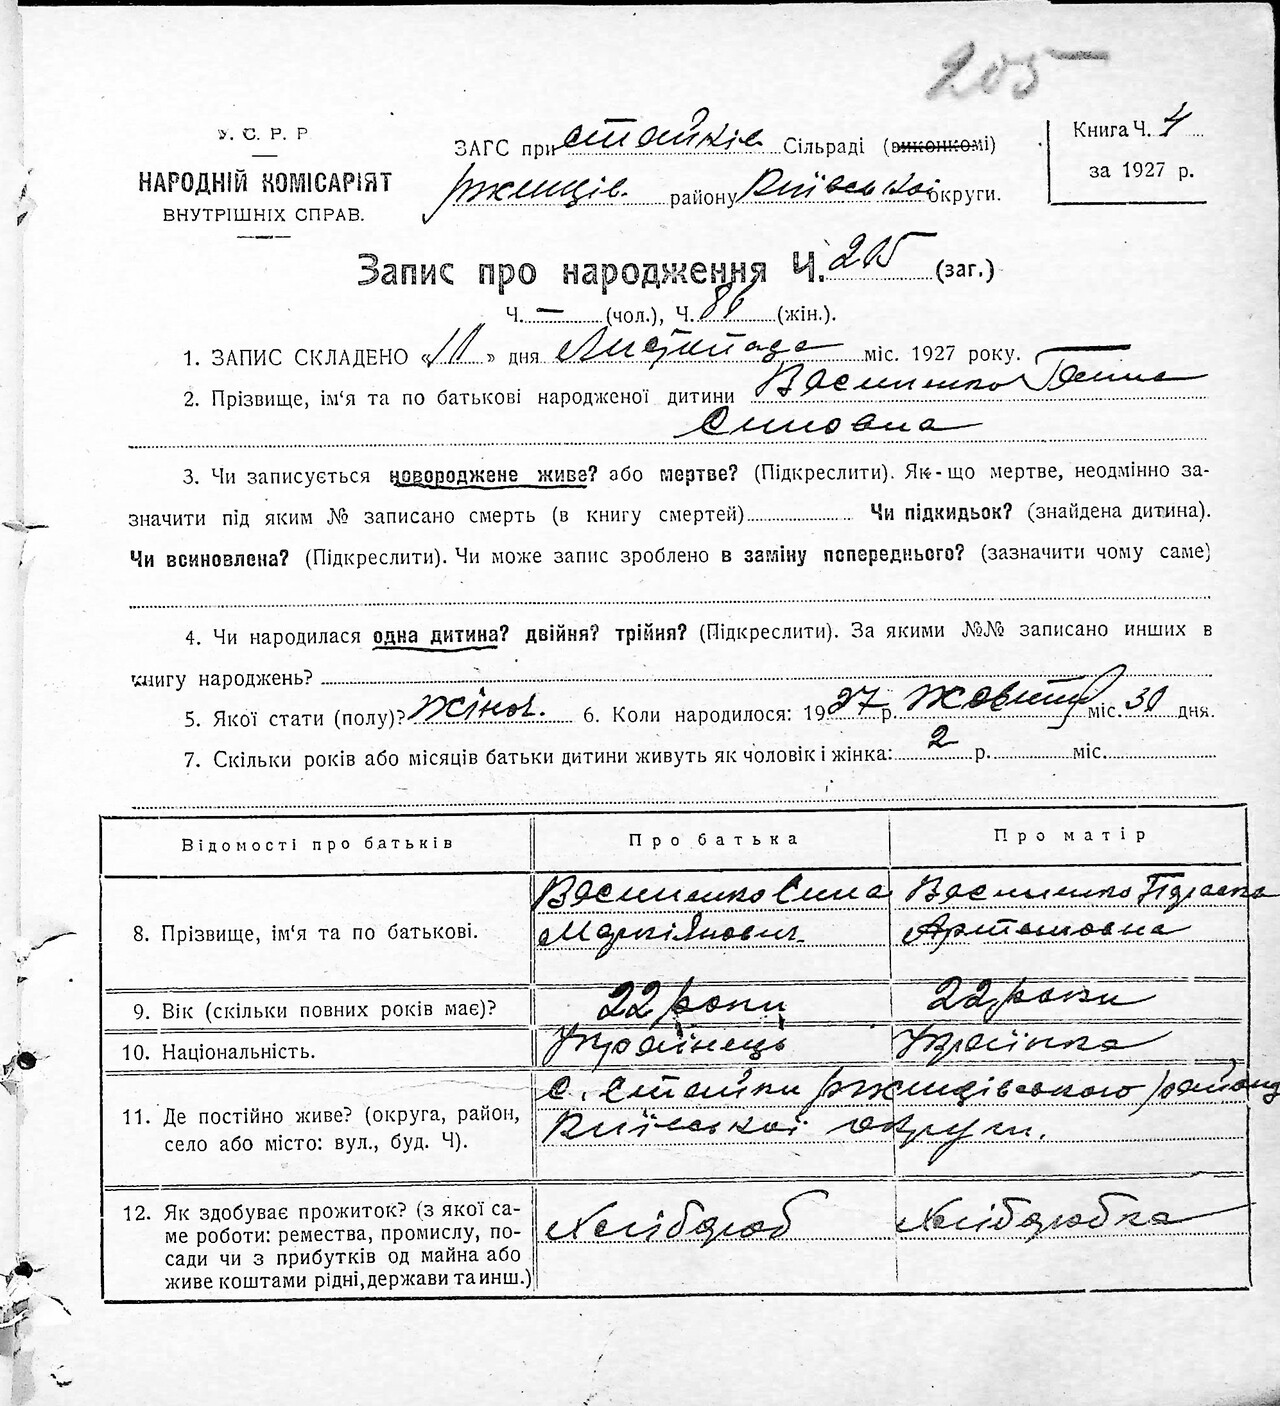 205
У. С. Р. Р
НАРОДНІЙ КОМІСАРІЯТ
ВНУТРІШНІХ СПРАВ.
ЗАГС при Стайків Сільраді (виконкомі)
Ржищів. району Київської округи.
Книга Ч. 4
за 1927 р.
Запис про народження Ч. 205 (заг.)
Ч. — (чол.), Ч. 86 (жін.).
1. ЗАПИС СКЛАДЕНО « 11 » дня Листопада міс. 1927 року.
2. Прізвище, ім'я та по батькові народженої дитини Василенко Ганна
Силовна
3. Чи записується новороджене живе? або мертве? (Підкреслити). Як-що мертве, неодмінно за-
значити під яким № записано смерть (в книгу смертей) Чи підкидьок? (знайдена дитина).
Чи всиновлена? (Підкреслити). Чи може запис зроблено в заміну попереднього? (зазначити чому саме)
4. Чи народилася одна дитина? двійня? трійня? (Підкреслити). За якими №№ записано инших в
книгу народжень?
5. Якої стати (полу)? жіноч. 6. Коли народилося: 1927 р. Жовтня міс. 30 дня.
7. Скільки років або місяців батьки дитини живуть як чоловік і жінка: 2 р. міс.
Відомості про батьків Про батька Про матір
Василенко Сила Василенко Параска
8. Прізвище, ім'я та по батькові. Маркіянович. Артемовна
9. Вік (скільки повних років має)? 22 роки 22 роки
10. Національність. Українець Українка
с. Стайки Ржищівського району
11. Де постійно живе? (округа, район, Київської округи.
село або місто: вул., буд. Ч).
12. Як здобуває прожиток? (з якої са- Хлібороб Хліборобка
ме роботи: ремества, промислу, по-
сади чи з прибутків од майна або
живе коштами рідні, держави та инш.)